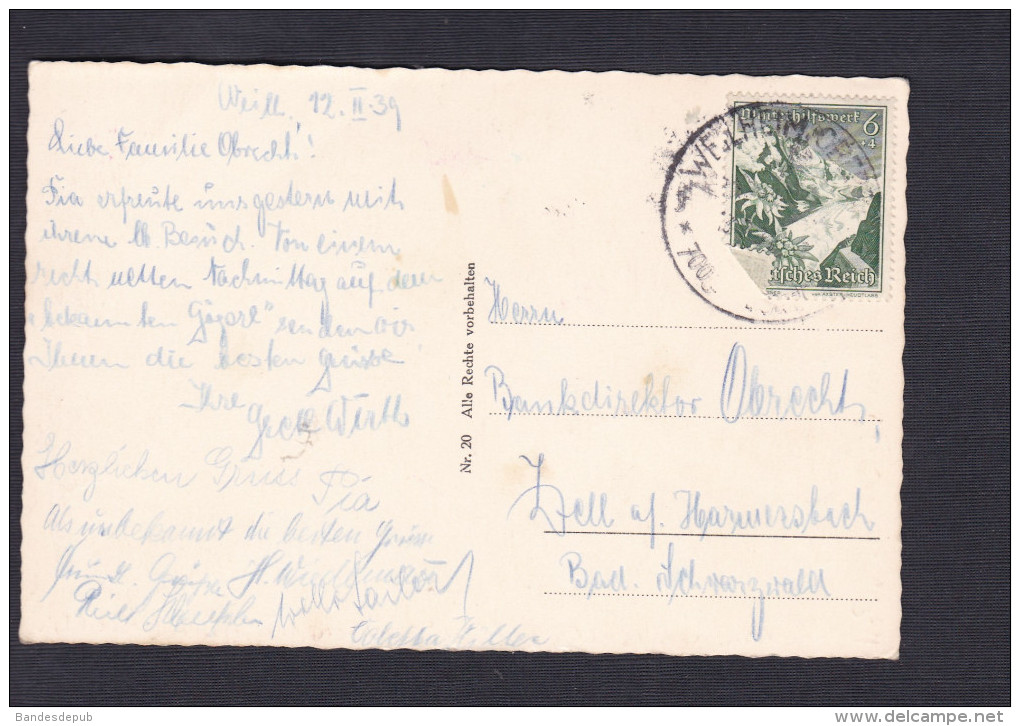 Weilh. 12. II. 39
Liebe Familie Obrecht!
Pia erfreute uns gestern mit
ihrem lb. Besuch. Von einem
recht netten Nachmittag auf dem
"bekannten Gögerl" senden wir
Ihnen die besten Grüsse
Ihre Wirth
Herzlichen Gruss Pia
Als unbekannt die besten Grüsse
Grüsse H.
Nr. 20 Alle Rechte vorbehalten
WEILHEIM (OBB)
Winterhilfswerk 6
+4
Deutsches Reich
Herrn
Bankdirektor Obrecht,
Zell a/ Harmersbach
Bad. Schwarzwald
Bandesdepub
www.delcampe.net